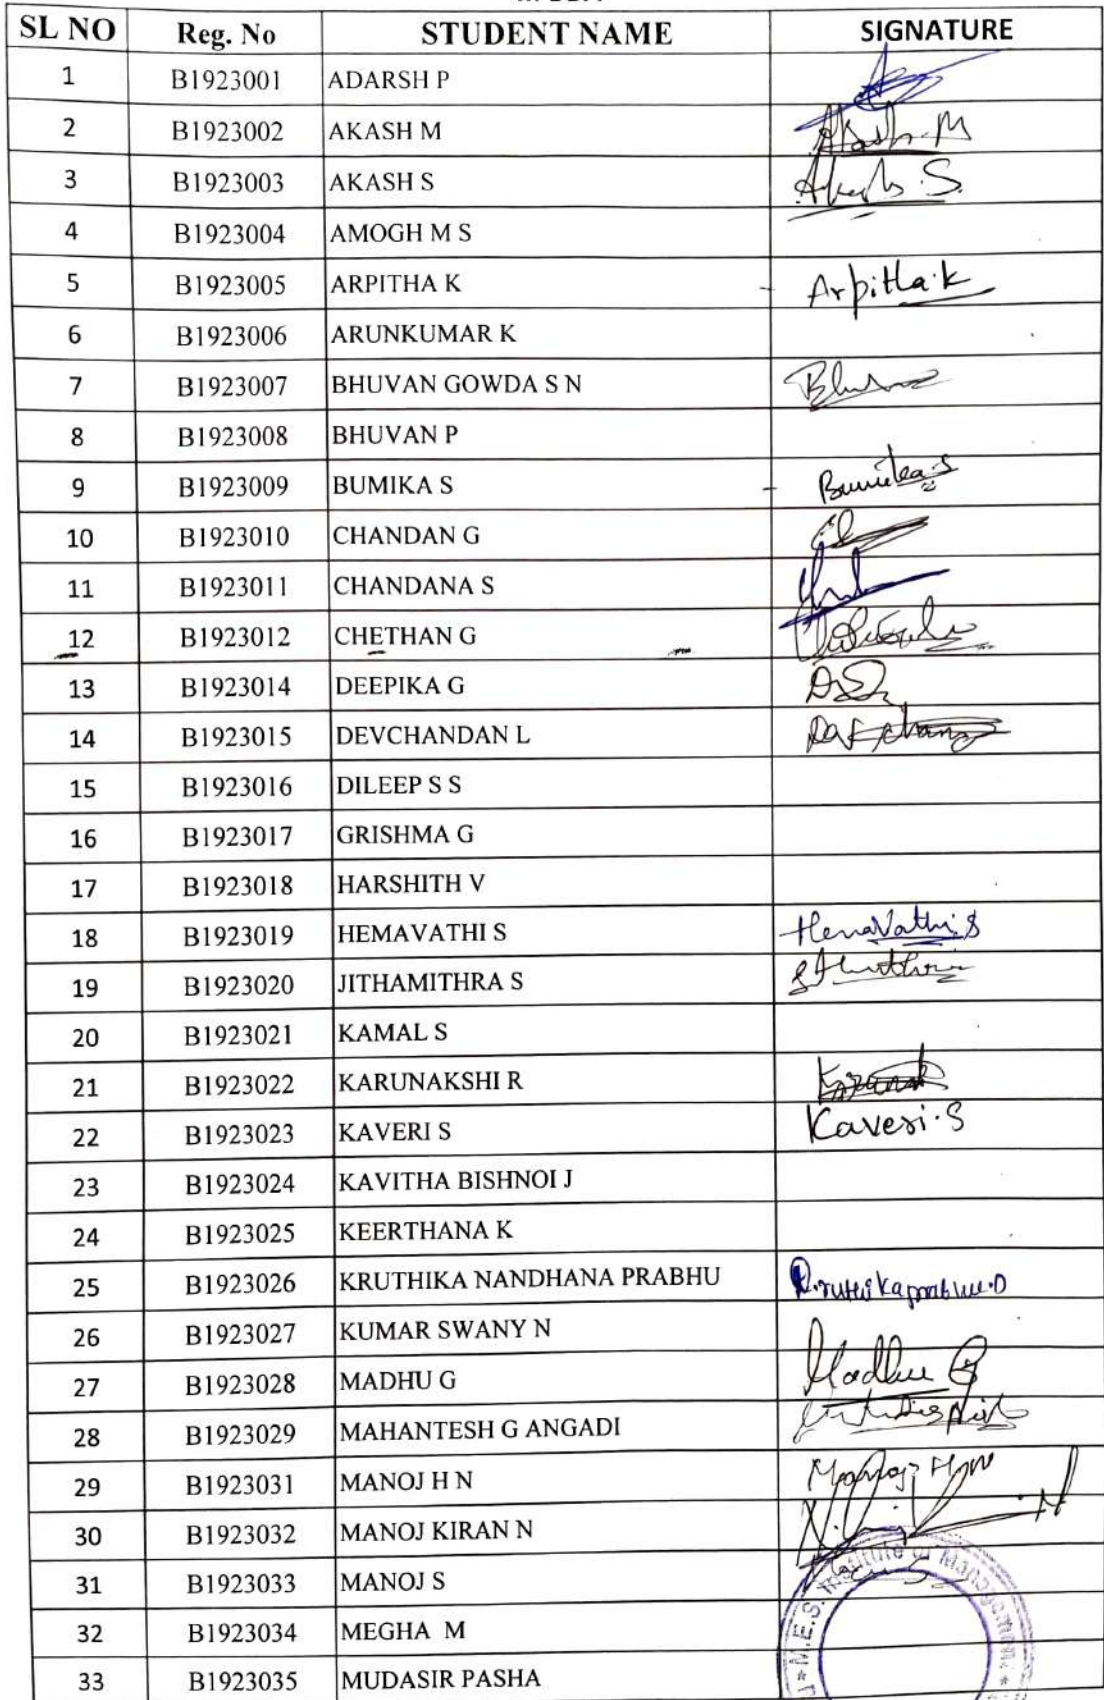 SL NO Reg. No STUDENT NAME SIGNATURE
1 B1923001 ADARSH P
2 B1923002 AKASH M Akash M
3 B1923003 AKASH S Akash S.
4 B1923004 AMOGH M S
5 B1923005 ARPITHA K Arpitha.k
6 B1923006 ARUNKUMAR K
7 B1923007 BHUVAN GOWDA S N
8 B1923008 BHUVAN P
9 B1923009 BUMIKA S Bumika.S
10 B1923010 CHANDAN G
11 B1923011 CHANDANA S
12 B1923012 CHETHAN G
13 B1923014 DEEPIKA G
14 B1923015 DEVCHANDAN L
15 B1923016 DILEEP S S
16 B1923017 GRISHMA G
17 B1923018 HARSHITH V
18 B1923019 HEMAVATHI S HemaVathi.S
19 B1923020 JITHAMITHRA S
20 B1923021 KAMAL S
21 B1923022 KARUNAKSHI R
22 B1923023 KAVERI S Kaveri.S
23 B1923024 KAVITHA BISHNOI J
24 B1923025 KEERTHANA K
25 B1923026 KRUTHIKA NANDHANA PRABHU
26 B1923027 KUMAR SWANY N
27 B1923028 MADHU G Madhu G
28 B1923029 MAHANTESH G ANGADI
29 B1923031 MANOJ H N Manoj H N
30 B1923032 MANOJ KIRAN N
31 B1923033 MANOJ S
32 B1923034 MEGHA M
33 B1923035 MUDASIR PASHA
M.E.S. Institute of Management